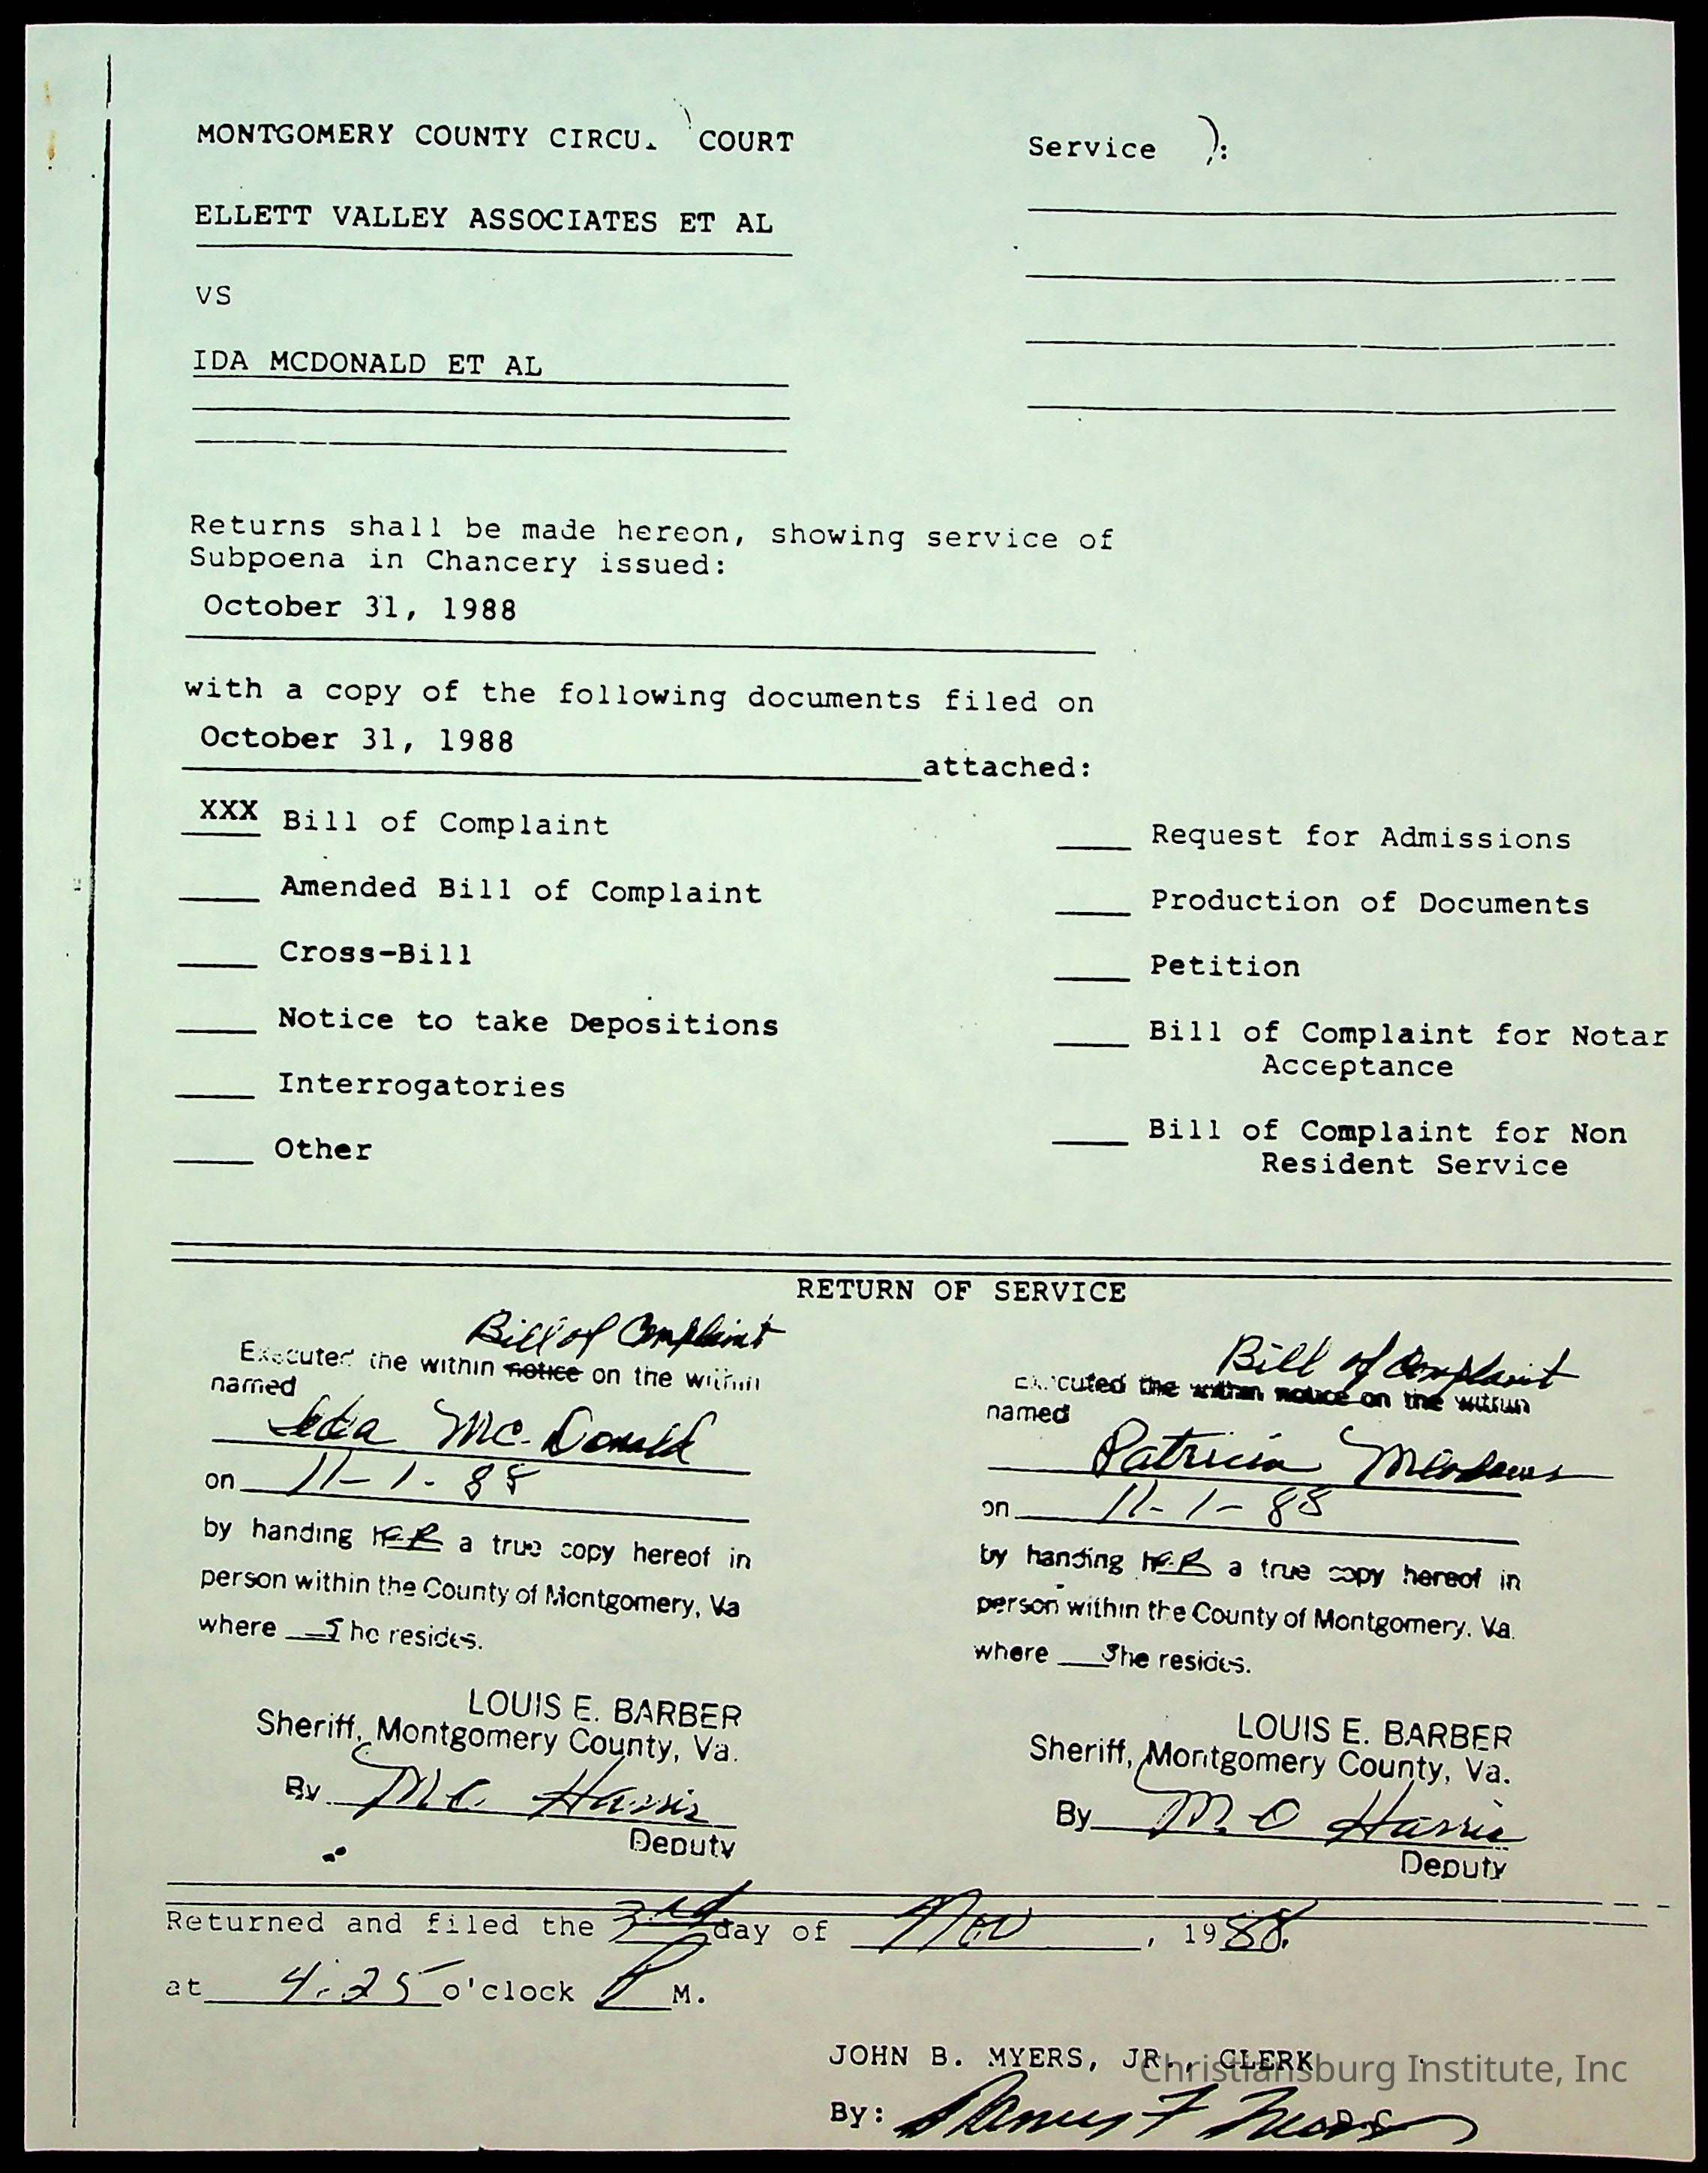 MONTGOMERY COUNTY CIRCU. COURT
Service ):
ELLETT VALLEY ASSOCIATES ET AL
VS
IDA MCDONALD ET AL
Returns shall be made hereon, showing service of
Subpoena in Chancery issued:
October 31, 1988
with a copy of the following documents filed on
October 31, 1988
attached:
XXX Bill of Complaint
Amended Bill of Complaint
Cross-Bill
Notice to take Depositions
Interrogatories
Other
Request for Admissions
Production of Documents
Petition
Bill of Complaint for Notar
Acceptance
Bill of Complaint for Non
Resident Service
RETURN OF SERVICE
Bill of Complaint
Executed the within notice on the within
named
Ida Mc. Donald
on 11-1-88
by handing her a true copy hereof in
person within the County of Montgomery, Va
where She resides.
LOUIS E. BARBER
Sheriff, Montgomery County, Va.
By M.C. Harris
Deputy
Bill of Complaint
Executed the within notice on the within
named
Patricia Meadows
on 11-1-88
by handing her a true copy hereof in
person within the County of Montgomery, Va.
where She resides.
LOUIS E. BARBER
Sheriff, Montgomery County, Va.
By M.C Harris
Deputy
Returned and filed the 3rd day of Nov, 1988.
at 4:25 o'clock P M.
JOHN B. MYERS, JR., CLERK
Christiansburg Institute, Inc
By: